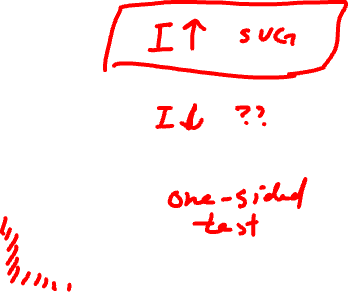 I↑ SUG
I↓ ??
one-sided
test